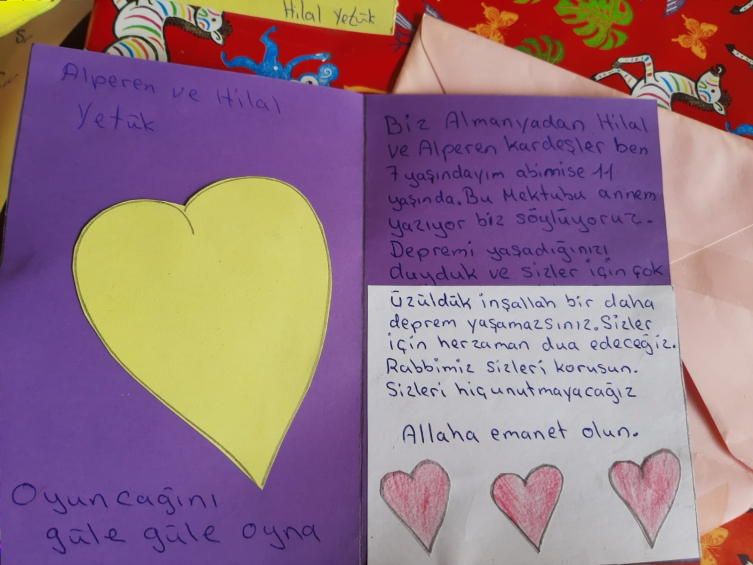 Hilal Yetük
Alperen ve Hilal
Yetük
Oyuncağını
güle güle oyna
Biz Almanyadan Hilal
ve Alperen kardeşler ben
7 yaşındayım abimise 11
yaşında. Bu Mektubu annem
yazıyor biz söylüyoruz.
Depremi yaşadığınızı
duyduk ve sizler için çok
üzüldük inşallah bir daha
deprem yaşamazsınız. Sizler
için herzaman dua edeceğiz.
Rabbimiz sizleri korusun.
Sizleri hiçunutmayacağız
Allaha emanet olun.